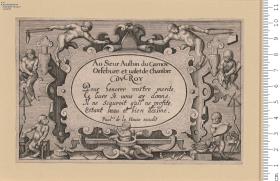 Au Seur Aulbin du Carnoy
Orfebure et valet de Chambre
Du Roy
Pour honorer vostre merite
Ce livre Je vous ay donné,
Il ne sçauroit qu'il ne profite,
Estant beau et bien
Paul de la Houve excudit